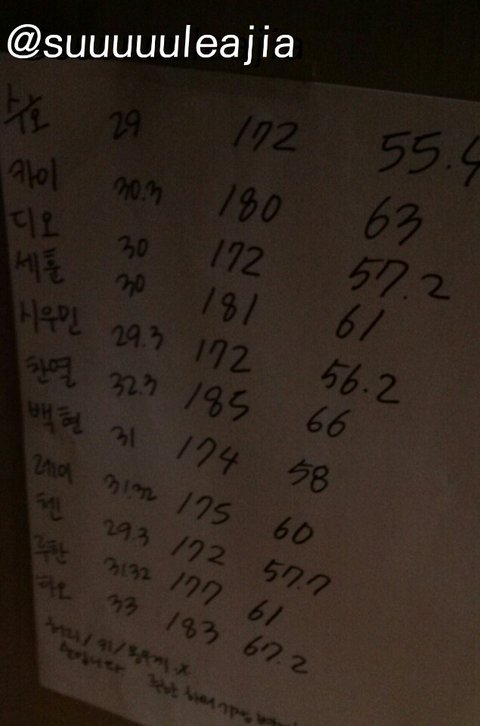 @suuuuuleajia
수호 29 172 55.4
카이 30.3 180 63
디오 30 172 57.2
세훈 30 181 61
시우민 29.3 172 56.2
찬열 32.3 185 66
백현 31 174 58
레이 31.32 175 60
첸 29.3 172 57.7
루한 31.32 177 61
타오 33 183 67.2
허리/키/몸무게
순입니다